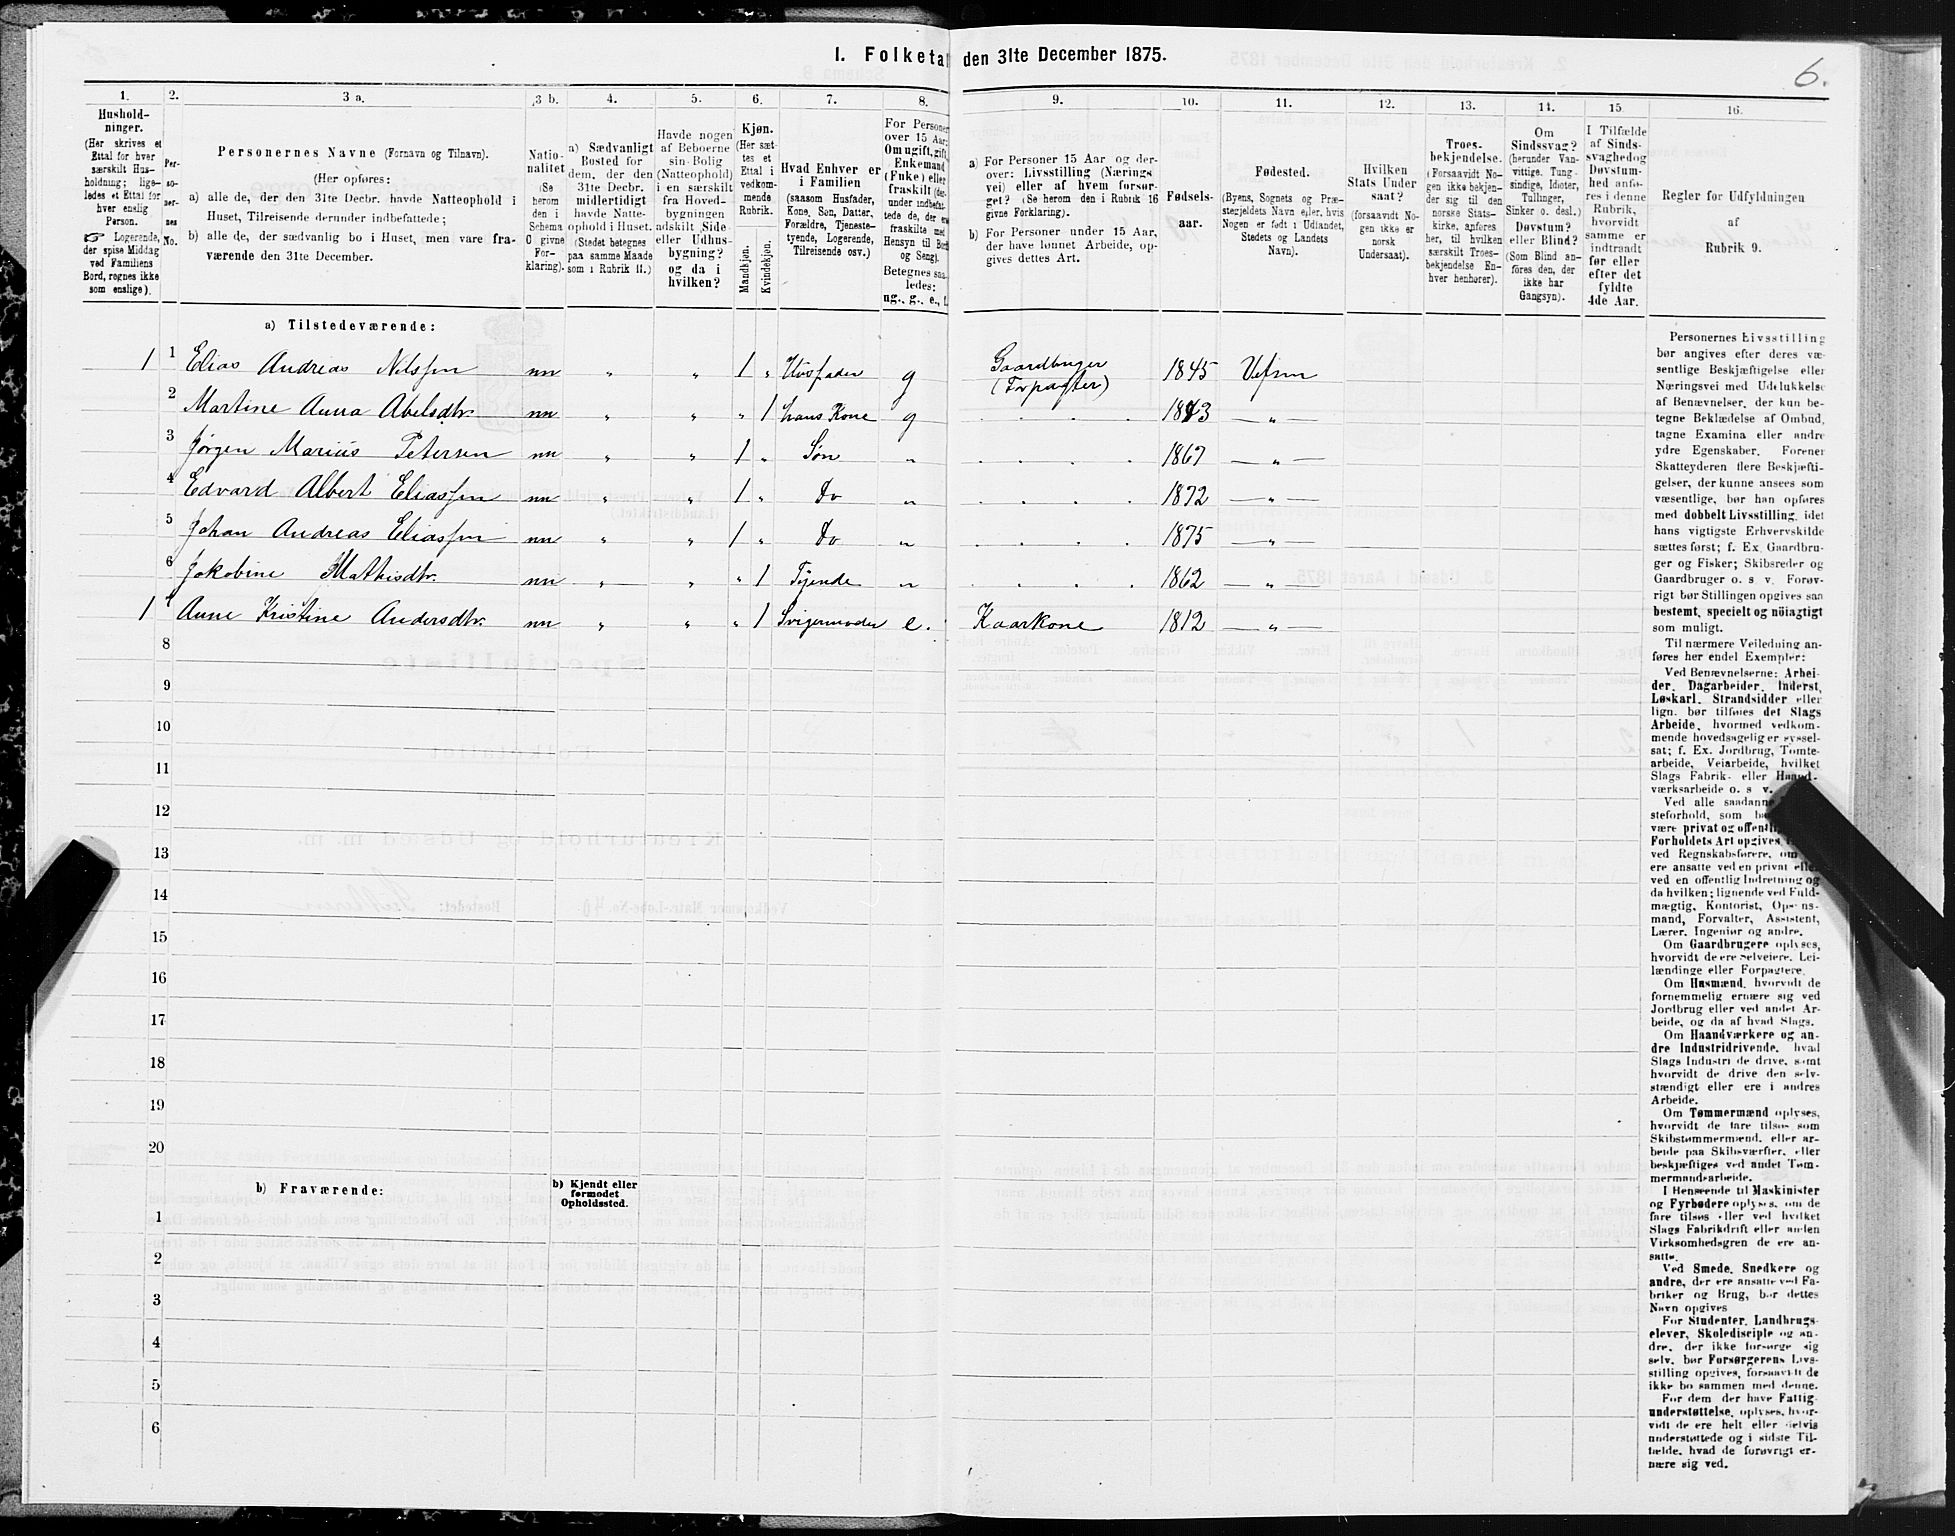 I. Folketal den 31te December 1875.
6.
1. 2. 3 a. 3 b. 4. 5. 6. 7. 8. 9. 10. 11. 12. 13. 14. 15. 16.
Hushold-
ninger.
(Her skrives et
Ettal for hver
særskilt Hus-
holdning; lige-
ledes et Ettal for
hver enslig
Person.
☞ Logerende,
der spise Middag
ved Familiens
Bord, regnes ikke
som enslige).
Per-
so-
ner-
nes
No.
Personernes Navne (Fornavn og Tilnavn).
(Her opføres:
a) alle de, der den 31te Decbr. havde Natteophold i
Huset, Tilreisende derunder indbefattede;
b) alle de, der sædvanlig bo i Huset, men vare fra-
værende den 31te December.
Natio-
nalitet
(Se
herom
den i
Schema
O givne
For-
klaring).
a) Sædvanligt
Bosted for
dem, der den
31te Decbr.
midlertidigt
havde Natte-
ophold i Huset.
(Stedet betegnes
paa samme Maade
som i Rubrik 11.)
Havde nogen
af Beboerne
sin Bolig
(Natteophold)
i en særskilt
fra Hoved-
bygningen
adskilt Side-
eller Udhus-
bygning?
og da i
hvilken?
Kjøn.
(Her sæt-
tes et
Ettal i
vedkom-
mende
Rubrik.
Mandkjøn.
Kvindekjøn.
Hvad Enhver er
i Familien
(saasom Husfader,
Kone, Søn, Datter,
Forældre, Tjeneste-
tyende, Logerende,
Tilreisende osv.)
For Personer
over 15 Aar:
Om ugift, gift,
Enkemand
(Enke) eller
fraskilt (der-
under indbefat-
tede de, der ere
fraskilte med
Hensyn til Bord
og Seng).
Betegnes saa-
ledes:
ug., g., e., f.
a) For Personer 15 Aar og der-
over: Livsstilling (Nærings-
vei) eller af hvem forsør-
get? (Se herom den i Rubrik 16
givne Forklaring).
b) For Personer under 15 Aar,
der have lønnet Arbeide, op-
gives dettes Art.
Fødsels-
aar.
Fødested.
(Byens, Sognets og Præ-
stegjeldets Navn eller, hvis
Nogen er født i Udlandet,
Stedets og Landets
Navn).
Hvilken
Stats Under
saat?
(forsaavidt No-
gen ikke er
norsk
Undersaat).
Troes-
bekjendelse.
(Forsaavidt No-
gen ikke bekjen-
der sig til den
norske Stats-
kirke, anføres
her, til hvilken
særskilt Troes-
bekjendelse En-
hver henhører).
Om
Sindssvag?
(herunder Van-
vittige, Tung-
sindige, Idioter,
Tullinger,
Sinker o. desl.)
Døvstum?
eller Blind?
(Som Blind an-
føres den, der
ikke har
Gangsyn).
I Tilfælde
af Sinds-
svaghed og
Døvstum-
hed anfø-
res i denne
Rubrik,
hvorvidt
samme er
indtraadt
før eller
efter det
fyldte
4de Aar.
Regler for Udfyldningen
af
Rubrik 9.
a) Tilstedeværende:
1 1 Elias Andreas Nilssen nn " " 1 " Husfader g Gaardbruger (Forpagter) 1845 Vefsen
2 Martine Anna Abelsdtr. nn " " " 1 hans Kone g 1843 — " —
3 Jørgen Marius Petersen nn " " 1 " Søn " 1867 — " —
4 Edvard Albert Eliassen nn " " 1 " Do " 1872 — " —
5 Johan Andreas Eliassen nn " " 1 " Do " 1875 — " —
6 Jakobine Mathisdtr. nn " " " 1 Tjende " 1862 — " —
1 7 Anne Kristine Andersdtr. nn " " " 1 Svigermoder e. Kaarkone 1812 — " —
8
9
10
11
12
13
14
15
16
17
18
19
20
b) Fraværende:
b) Kjendt eller
formodet
Opholdssted.
1
2
3
4
5
6
Personernes Livsstilling
bør angives efter deres væ-
sentlige Beskjæftigelse eller
Næringsvei med Udelukkelse
af Benævnelser, der kun be-
tegne Beklædelse af Ombud,
tagne Examina eller andre
ydre Egenskaber. Forener
Skatteyderen flere Beskjæfti-
gelser, der kunne ansees som
væsentlige, bør han opføres
med dobbelt Livsstilling, idet
hans vigtigste Erhvervskilde
sættes først; f. Ex. Gaardbru-
ger og Fisker; Skibsreder og
Gaardbruger o. s. v. Forøv-
rigt bør Stillingen opgives saa
bestemt, specielt og nöiagtigt
som muligt.
Til nærmere Veiledning an-
føres her endel Exempler:
Ved Benævnelserne: Arbei-
der, Dagarbeider, Inderst,
Løskarl, Strandsidder eller
lign. bør tilføies det Slags
Arbeide, hvormed vedkom-
mende hovedsagelig er syssel-
sat; f. Ex. Jordbrug, Tomte-
arbeide, Veiarbeide, hvilket
Slags Fabrik- eller Haand-
værksarbeide o. s. v.
Ved alle saadanne
steforhold, som
være privat og offentlig
Forholdets Art opgives,
ved Regnskabsførere, om
ere ansatte ved en privat eller
ved en offentlig Indretning og
da hvilken; lignende ved Fuld-
mægtig, Kontorist, Opsyns-
mand, Forvalter, Assistent,
Lærer, Ingeniør og andre.
Om Gaardbrugere oplyses,
hvorvidt de ere Selveiere, Lei-
lændinge eller Forpagtere.
Om Husmænd, hvorvidt de
fornemmelig ernære sig ved
Jordbrug eller ved andet Ar-
beide, og da af hvad Slags.
Om Haandværkere og an-
dre Industridrivende, hvad
Slags Industri de drive, samt
hvorvidt de drive den selv-
stændigt eller ere i andres
Arbeide.
Om Tømmermænd oplyses,
hvorvidt de fare tilsøs som
Skibstømmermænd, eller ar-
beide paa Skibsværfter, eller
beskjæftiges ved andet Tøm-
mermandsarbeide.
I Henseende til Maskinister
og Fyrbødere oplyses, om de
fare tilsøs eller ved hvilket
Slags Fabrikdrift eller anden
Virksomhedsgren de ere an-
satte.
Ved Smede, Snedkere og
andre, der ere ansatte ved Fa-
briker og Brug, bør dettes
Navn opgives
For Studenter, Landbrugs-
elever, Skoledisciple og an-
dre, der ikke forsørge sig
selv, bør Forsørgerens Livs-
stilling opgives, forsaavidt de
ikke bo sammen med denne.
For dem, der have Fattig-
understøttelse, oplyses, hvor-
vidt de ere helt eller delvis
understøttede og i sidste Til-
fælde, hvad de forøvrigt er-
nære sig ved.